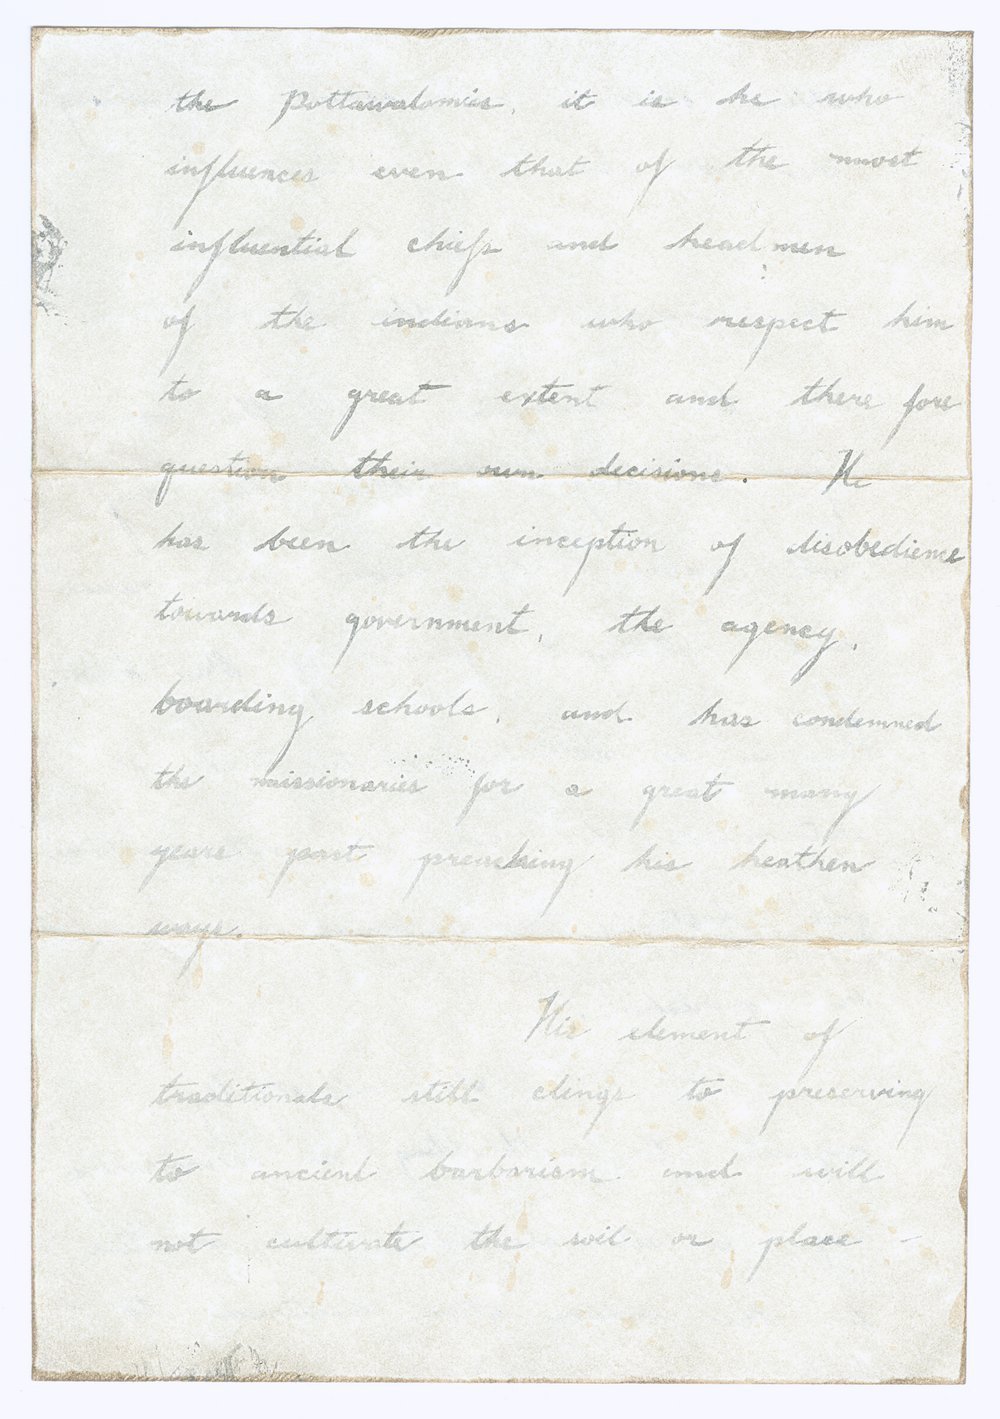 the Pottawatomies, it is he who
influences even that of the most
influential chiefs and headmen
of the indians who respect him
to a great extent and there fore
question their own decisions. He
has been the inception of disobedience
towards government, the agency,
boarding schools, and has condemned
the missionaries for a great many
years past preaching his heathen
ways.
His element of
traditionals still clings to preserving
to ancient barbarism and will
not cultivate the soil or place -